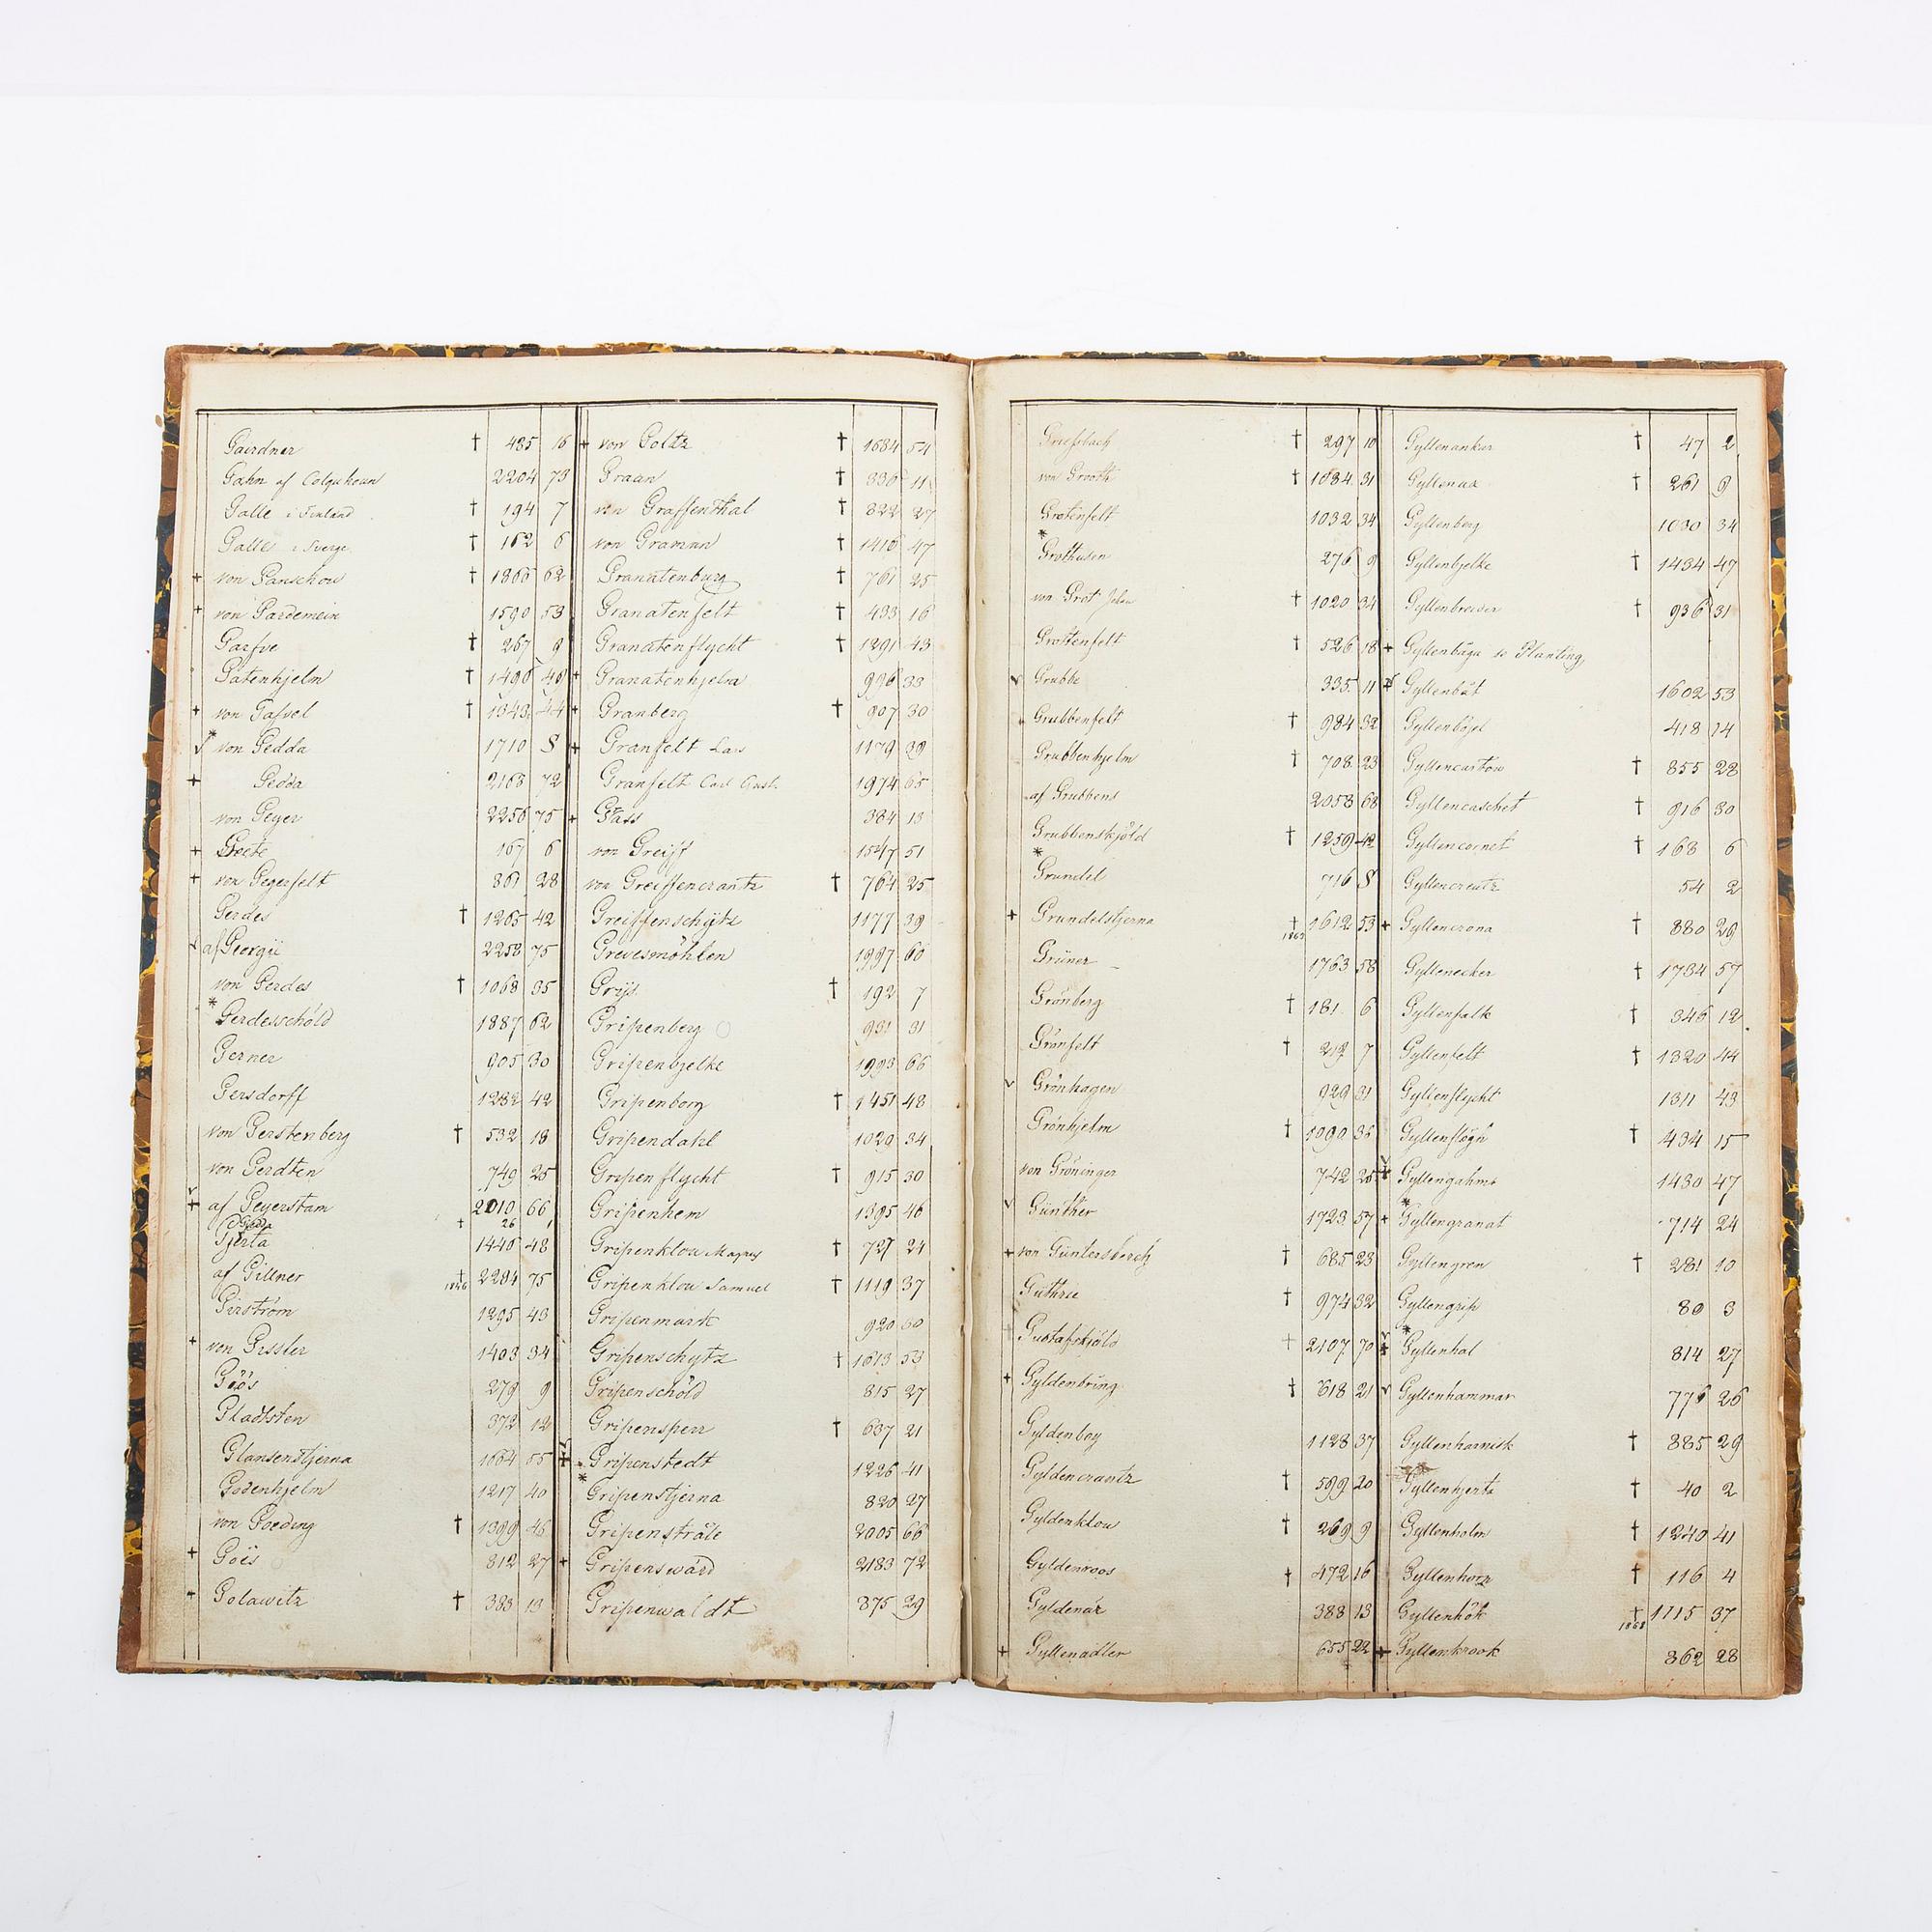 Gairdner † 485 16
Gahn af Colquhoun 2204 73
Galle i Finland † 194 7
Galle i Sverge † 162 6
+ von Ganschou † 1866 62
+ von Gardemein 1590 53
Garfve † 267 9
Gatenhjelm † 1490 49
+ von Gassel † 1343 44
von Gedda 1710 S
+ Gedda 2163 72
von Geyer 2256 75
+ Geete 167 6
+ von Gegerfelt 861 28
Gerdes † 1265 42
af Georgii 2258 75
von Gerdes † 1068 35
* Gerdesschöld 1887 62
Gerner 905 30
Gersdorff 1282 42
von Gerstenberg † 532 18
von Gerdten 749 25
+ af Geyerstam 2010 66
Gjerta † 1446 48
af Gillner † 1846 2284 75
Girström 1295 43
+ von Gissler 1403 34
Gjös 279 9
Gladtsten 372 12
Glansenstjerna 1664 55
Godenhjelm 1217 40
von Goeding † 1399 46
+ Goës 812 27
Golawitz † 383 13
+ von Goltz † 1684 54
Graan † 336 11
von Graffenthal † 822 27
von Graman † 1416 47
Granatenburg † 761 25
Granatenfelt † 433 16
Granatenflycht † 1291 43
+ Granatenhjelm 996 33
+ Granberg † 907 30
+ Granfelt Lars 1179 39
Granfelt Carl Gust. 1974 65
+ Grass 384 13
von Greiff 1547 51
von Greiffencrantz † 764 25
Greiffenschytz 1177 39
Grevesmöhlen 1997 66
Grijs † 192 7
Gripenberg 931 31
Gripenbjelke 1993 66
Gripenborg † 1451 48
Gripendahl 1029 34
Gripenflycht † 915 30
Gripenhem 1395 46
Gripenklou Magnus † 727 24
Gripenklou Samuel † 1119 37
Gripenmark 920 30
Gripenschytz † 1613 53
Gripenschöld 815 27
Gripensperr † 637 21
Gripenstedt 1226 41
* Gripenstjerna 820 27
Gripenstråle 2005 66
+ Gripenswärd 2183 72
Gripenwaldt 875 29
Griessbach † 297 10
von Grooth † 1034 31
Grotenfelt 1032 34
* Grothusen 276 9
von Grot John † 1020 34
Grottenfelt † 526 18
v Grubbe 335 11
Grubbenfelt † 984 32
Grubbenhjelm † 708 23
af Grubbens 2058 68
Grubbenskjöld † 1259 42
* Grundel 716 S
+ Grundelstjerna † 1612 53
Grüner 1763 58
Grönberg † 181 6
Grönfelt † 212 7
v Grönhagen 929 31
Grönhjelm † 1090 36
von Gröninger 742 25
v Günther 1723 57
+ von Güntersberch † 685 23
Guthrie † 974 32
+ Gustafskjöld † 2107 70
+ Gyldenbring † 618 21
Gyldenboy 1128 37
Gyldencrantz † 599 20
Gyldenklou † 269 9
Gyldenroos † 472 16
Gyldenär 388 13
+ Gyllenadler 655 22
Gyllenankar † 47 2
Gyllenax † 261 9
Gyllenberg 1030 34
Gyllenbjelke † 1434 47
Gyllenbreider † 936 31
+ Gyllenbåga se Planting
Gyllenbåt 1602 53
Gyllenbögel 418 14
Gyllencartou † 855 28
Gyllencaschet † 916 30
Gyllencornet † 168 6
Gyllencreutz 54 2
+ Gyllencrona † 880 29
Gyllenecker † 1734 57
Gyllenfalk † 346 12
Gyllenfelt † 1320 44
Gyllenflycht 1311 43
Gyllenflögh † 434 15
Gyllengahm 1430 47
+ * Gyllengranat 714 24
Gyllengren † 281 10
Gyllengrip 80 3
* Gyllenhal 814 27
v Gyllenhammar 776 26
Gyllenharnisk † 885 29
Gyllenhjerta † 40 2
Gyllenholm † 1240 41
Gyllenhorn † 116 4
Gyllenhök † 1868 1115 37
+ Gyllenkrook 862 28